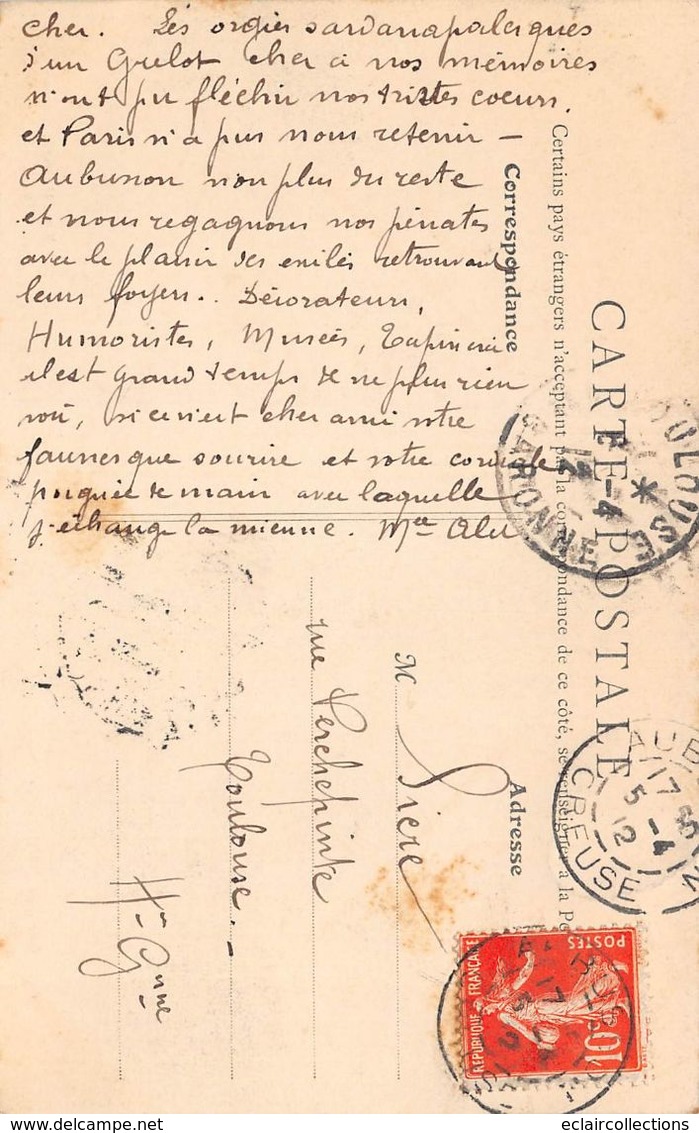 cher. Les orgies sardanapalesques
d'un Grelot cher à nos mémoires
n'ont pu fléchir nos tristes coeurs.
et Paris n'a pus nous retenir –
Aubusson non plus du reste
et nous regagnons nos pénates
avec le plaisir des exilés retrouvant
leurs foyers.. Décorateurs,
Humoristes, Musées, Tapisserie
il est grand temps de ne plus rien
voir, si ce n'est cher ami votre
faunesque sourire et votre cordiale
poignée de main avec laquelle
j'échange la mienne.
CARTE POSTALE
Certains pays étrangers n'acceptant pas la correspondance de ce côté, se renseigner à la Po
Correspondance
Adresse
M Sicre
rue Perchepinte
Toulouse.–
Hte Gnne
TOULOUSE
GARONNE
12 -4
AUB
17
5 -4
12
CREUSE
REPUBLIQUE FRANÇAISE
POSTES
10
eclaircollections
eclaircollections@delcampe.net